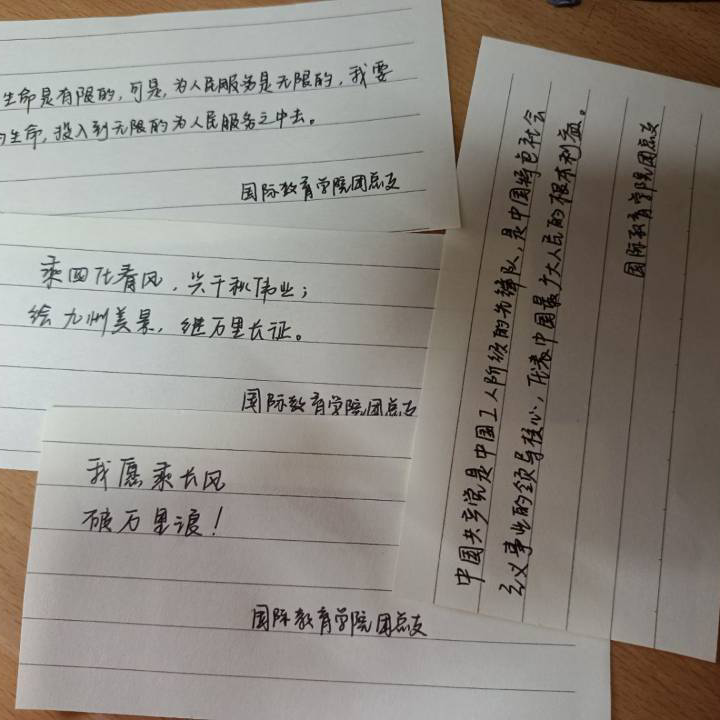 生命是有限的,可是,为人民服务是无限的,我要
的生命,投入到无限的为人民服务之中去。
国际教育学院团总支
乘四化春风,兴千秋伟业;
绘九州美景,继万里长征。
国际教育学院团总支
我愿乘长风
破万里浪!
国际教育学院团总支
中国共产党是中国工人阶级的先锋队,是中国特色社会
主义事业的领导核心,代表中国最广大人民的根本利益。
国际教育学院团总支